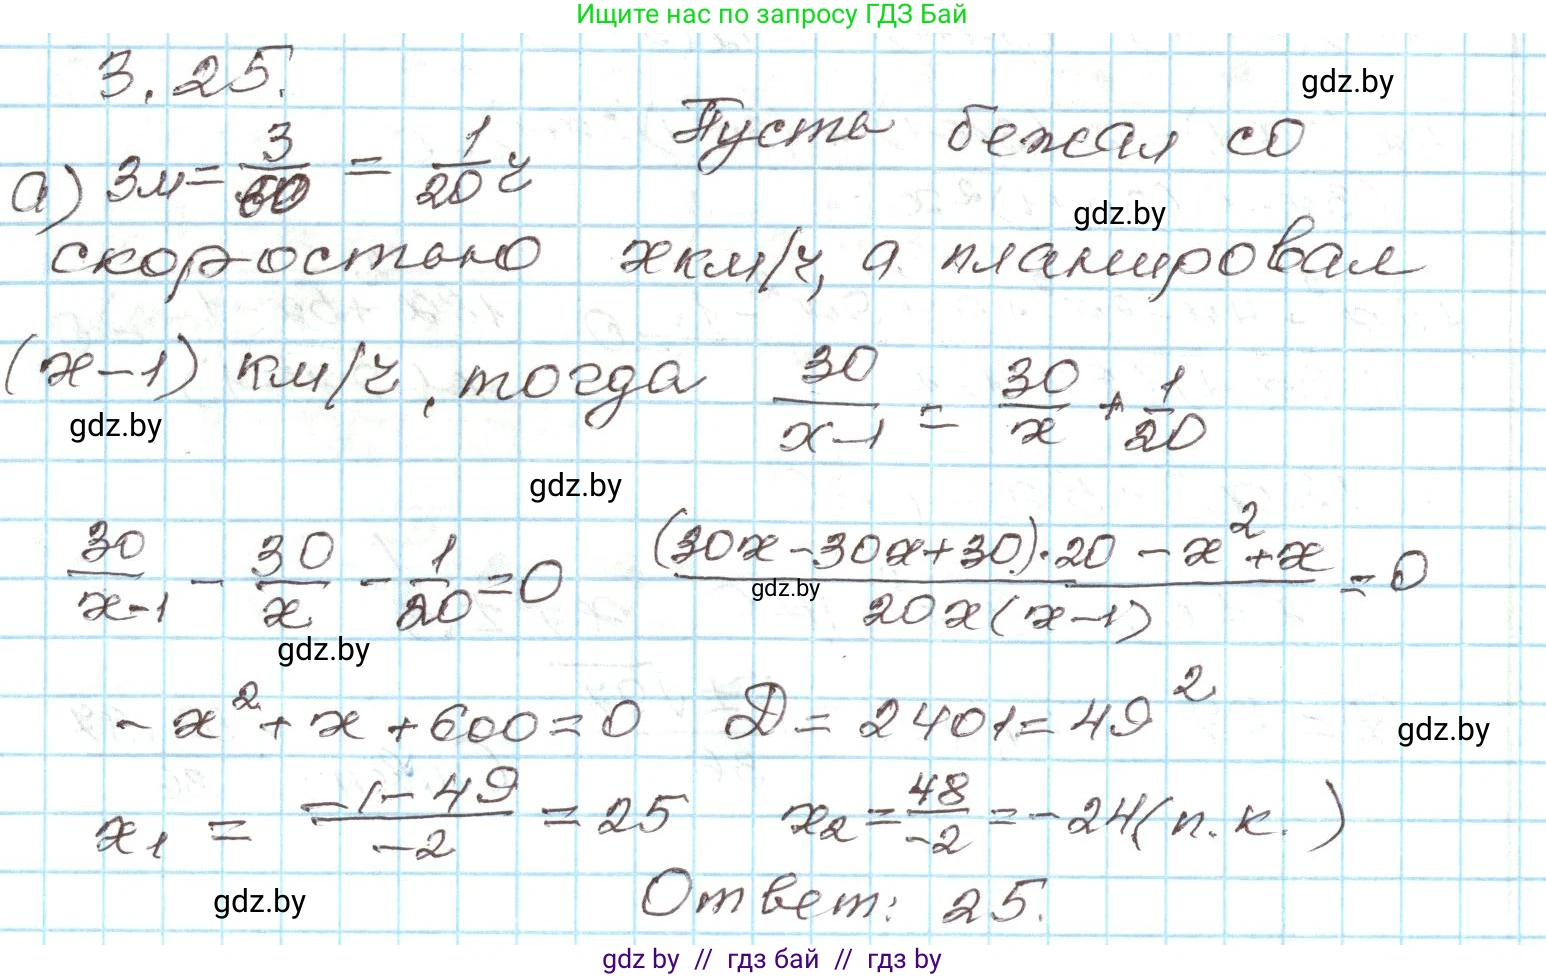 Ищите нас по запросу ГДЗ Бай
3.25.
gdz.by
а) 3м = 3/60 = 1/20 ч Пусть бежал со
gdz.by
скоростью x км/ч, а планировал
(x-1) км/ч, тогда 30/(x-1) = 30/x + 1/20
gdz.by
gdz.by
30/(x-1) - 30/x - 1/20 = 0 ((30x-30x+30)·20 - x²+x)/(20x(x-1)) = 0
gdz.by
gdz.by
-x²+x+600=0 Д=2401=49²
gdz.by
x₁ = (-1-49)/(-2) = 25 x₂ = 48/(-2) = -24 (п.к.)
gdz.by
Ответ: 25.
gdz by // гдз бай // гдз by